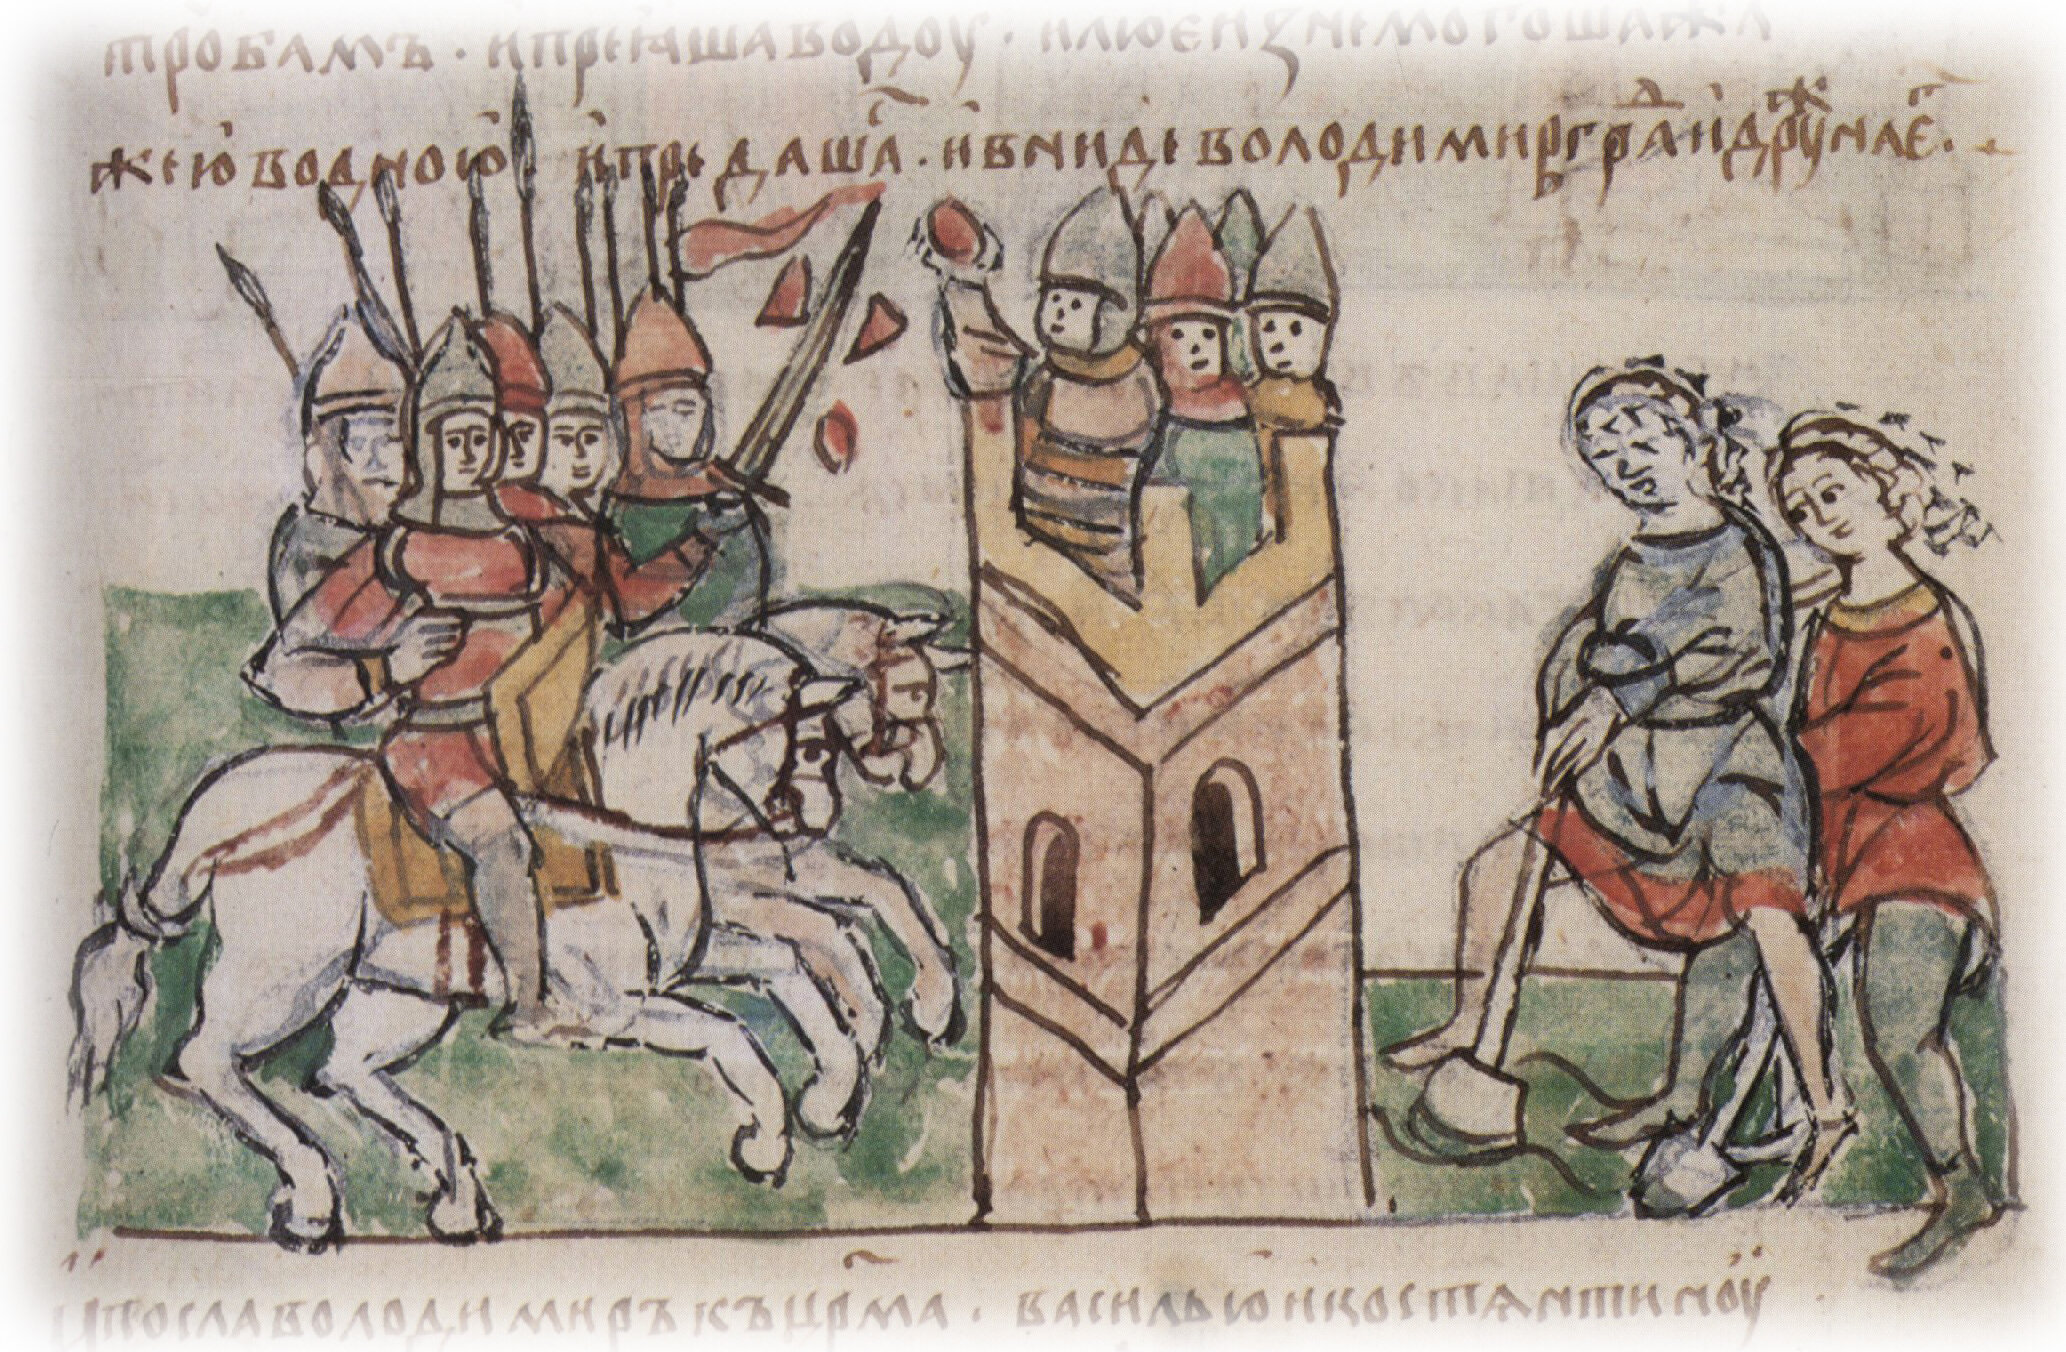 тробамъ · и преꙗша водоу · и люеи изнемогоша жа
жею водною · и предашаⷭ · и вниде володимир грⷣа и дрꙋⷤина еⷢ ·
и посла володимиръ къ црмⷭа · василью и костѧнтиноу